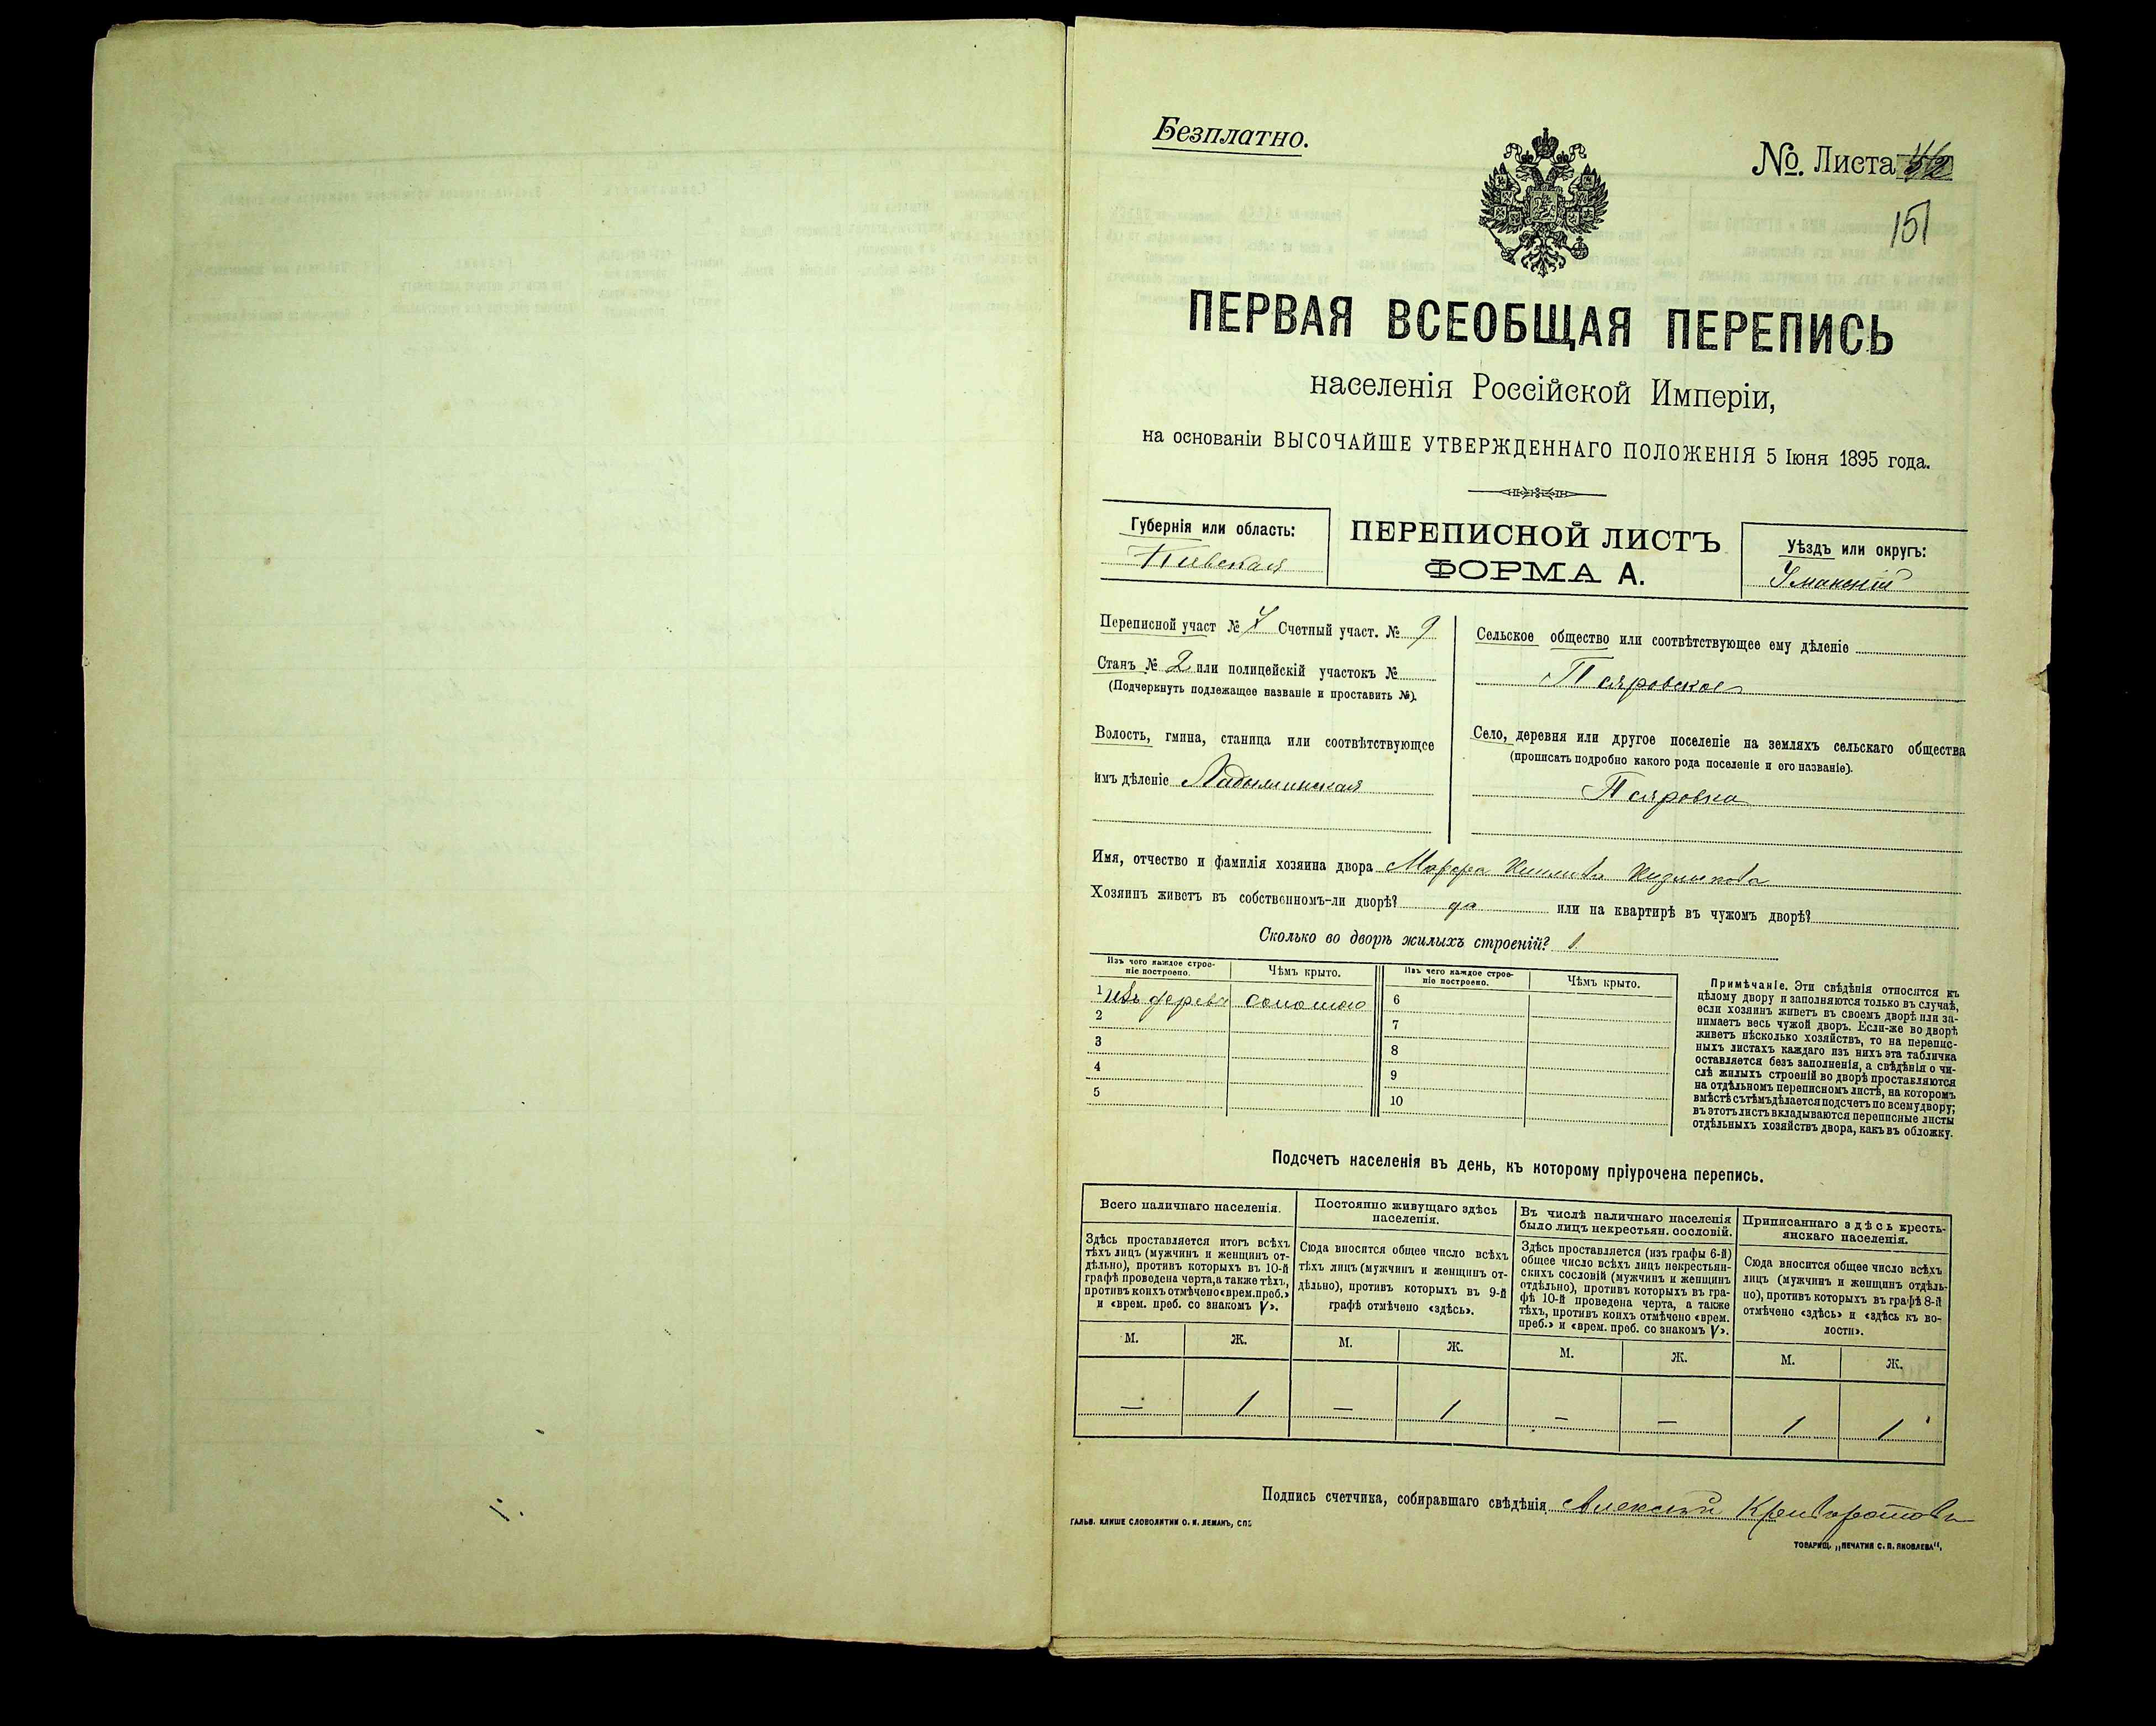 Безплатно.
№. Листа
151
ПЕРВАЯ ВСЕОБЩАЯ ПЕРЕПИСЬ
населенія Россійской Имперіи,
на основаніи ВЫСОЧАЙШЕ УТВЕРЖДЕННАГО ПОЛОЖЕНІЯ 5 Іюня 1895 года.
Губернія или область:
Кіевская
ПЕРЕПИСНОЙ ЛИСТЪ
ФОРМА А.
Уѣздъ или округъ:
Уманскій
Переписной участ № Счетный участ. № 9
Станъ № 2 или полицейскій участокъ №
(Подчеркнуть подлежащее названіе и проставить №).
Волость, гмина, станица или соотвѣтствующее
имъ дѣленіе Ладыжинская
Сельское общество или соотвѣтствующее ему дѣленіе
Псяровское
Село, деревня или другое поселеніе на земляхъ сельскаго общества
(прописать подробно какого рода поселеніе и его названіе).
Псяровка
Имя, отчество и фамилія хозяина двора Марфа
Хозяинъ живетъ въ собственномъ-ли дворѣ? да или на квартирѣ въ чужомъ дворѣ?
Сколько во дворѣ жилыхъ строеній? 1
Изъ чего каждое строе-
ніе построено.
Чѣмъ крыто.
Изъ чего каждое строе-
ніе построено.
Чѣмъ крыто.
1 изъ дерева соломою 6
2 7
3 8
4 9
5 10
Примѣчаніе. Эти свѣдѣнія относятся къ
цѣлому двору и заполняются только въ случаѣ,
если хозяинъ живетъ въ своемъ дворѣ или за-
нимаетъ весь чужой дворъ. Если-же во дворѣ
живетъ нѣсколько хозяйствъ, то на перепис-
ныхъ листахъ каждаго изъ нихъ эта табличка
оставляется безъ заполненія, а свѣдѣнія о чи-
слѣ жилыхъ строеній во дворѣ проставляются
на отдѣльномъ переписномъ листѣ, на которомъ
вмѣстѣ съ тѣмъ дѣлается подсчетъ по всему двору;
въ этотъ листъ вкладываются переписные листы
отдѣльныхъ хозяйствъ двора, какъ въ обложку.
Подсчетъ населенія въ день, къ которому пріурочена перепись.
Всего наличнаго населенія.
Здѣсь проставляется итогъ всѣхъ
тѣхъ лицъ (мужчинъ и женщинъ от-
дѣльно), противъ которыхъ въ 10-й
графѣ проведена черта, а также тѣхъ,
противъ коихъ отмѣчено «врем. преб.»
и «врем. преб. со знакомъ V».
Постоянно живущаго здѣсь
населенія.
Сюда вносится общее число всѣхъ
тѣхъ лицъ (мужчинъ и женщинъ от-
дѣльно), противъ которыхъ въ 9-й
графѣ отмѣчено «здѣсь».
Въ числѣ наличнаго населенія
было лицъ некрестьян. сословій.
Здѣсь проставляется (изъ графы 6-й)
общее число всѣхъ лицъ некрестьян-
скихъ сословій (мужчинъ и женщинъ
отдѣльно), противъ которыхъ въ гра-
фѣ 10-й проведена черта, а также
тѣхъ, противъ коихъ отмѣчено «врем.
преб.» и «врем. преб. со знакомъ V».
Приписаннаго здѣсь кресть-
янскаго населенія.
Сюда вносится общее число всѣхъ
лицъ (мужчинъ и женщинъ отдѣль-
но), противъ которыхъ въ графѣ 8-й
отмѣчено «здѣсь» и «здѣсь къ во-
лости».
М. Ж. М. Ж. М. Ж. М. Ж.
— 1 — 1 — — 1 1
Подпись счетчика, собиравшаго свѣдѣнія Алексѣй
ГАЛЬВ. КЛИШЕ СЛОВОЛИТНИ О. И. ЛЕМАНЪ, СПБ
ТОВАРИЩ. „ПЕЧАТНЯ С. П. ЯКОВЛЕВА“.